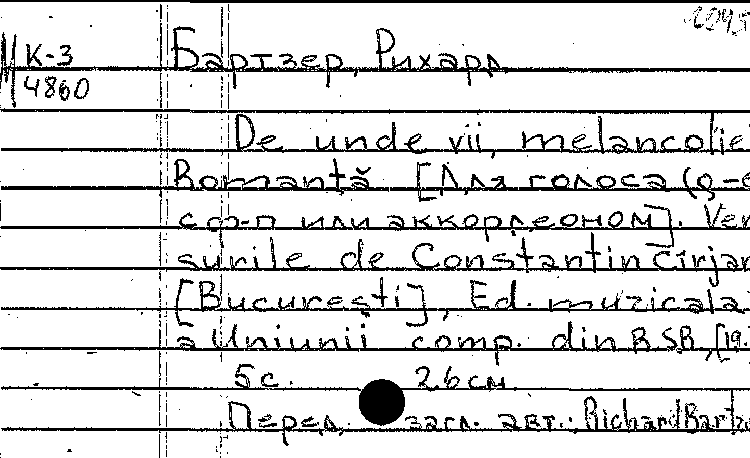 К-3
4860
Бартзер, Рихард
De unde vii, melancolie
Romanță [Для голоса (g-
с ф-п или аккордеоном]. Ver
surile de Constantin Cîrjan
[București], Ed. muzicală
a Uniunii comp. din R.S.R., [19.
5 с. 26 см.
Перед загл. авт.: Richard Bartze